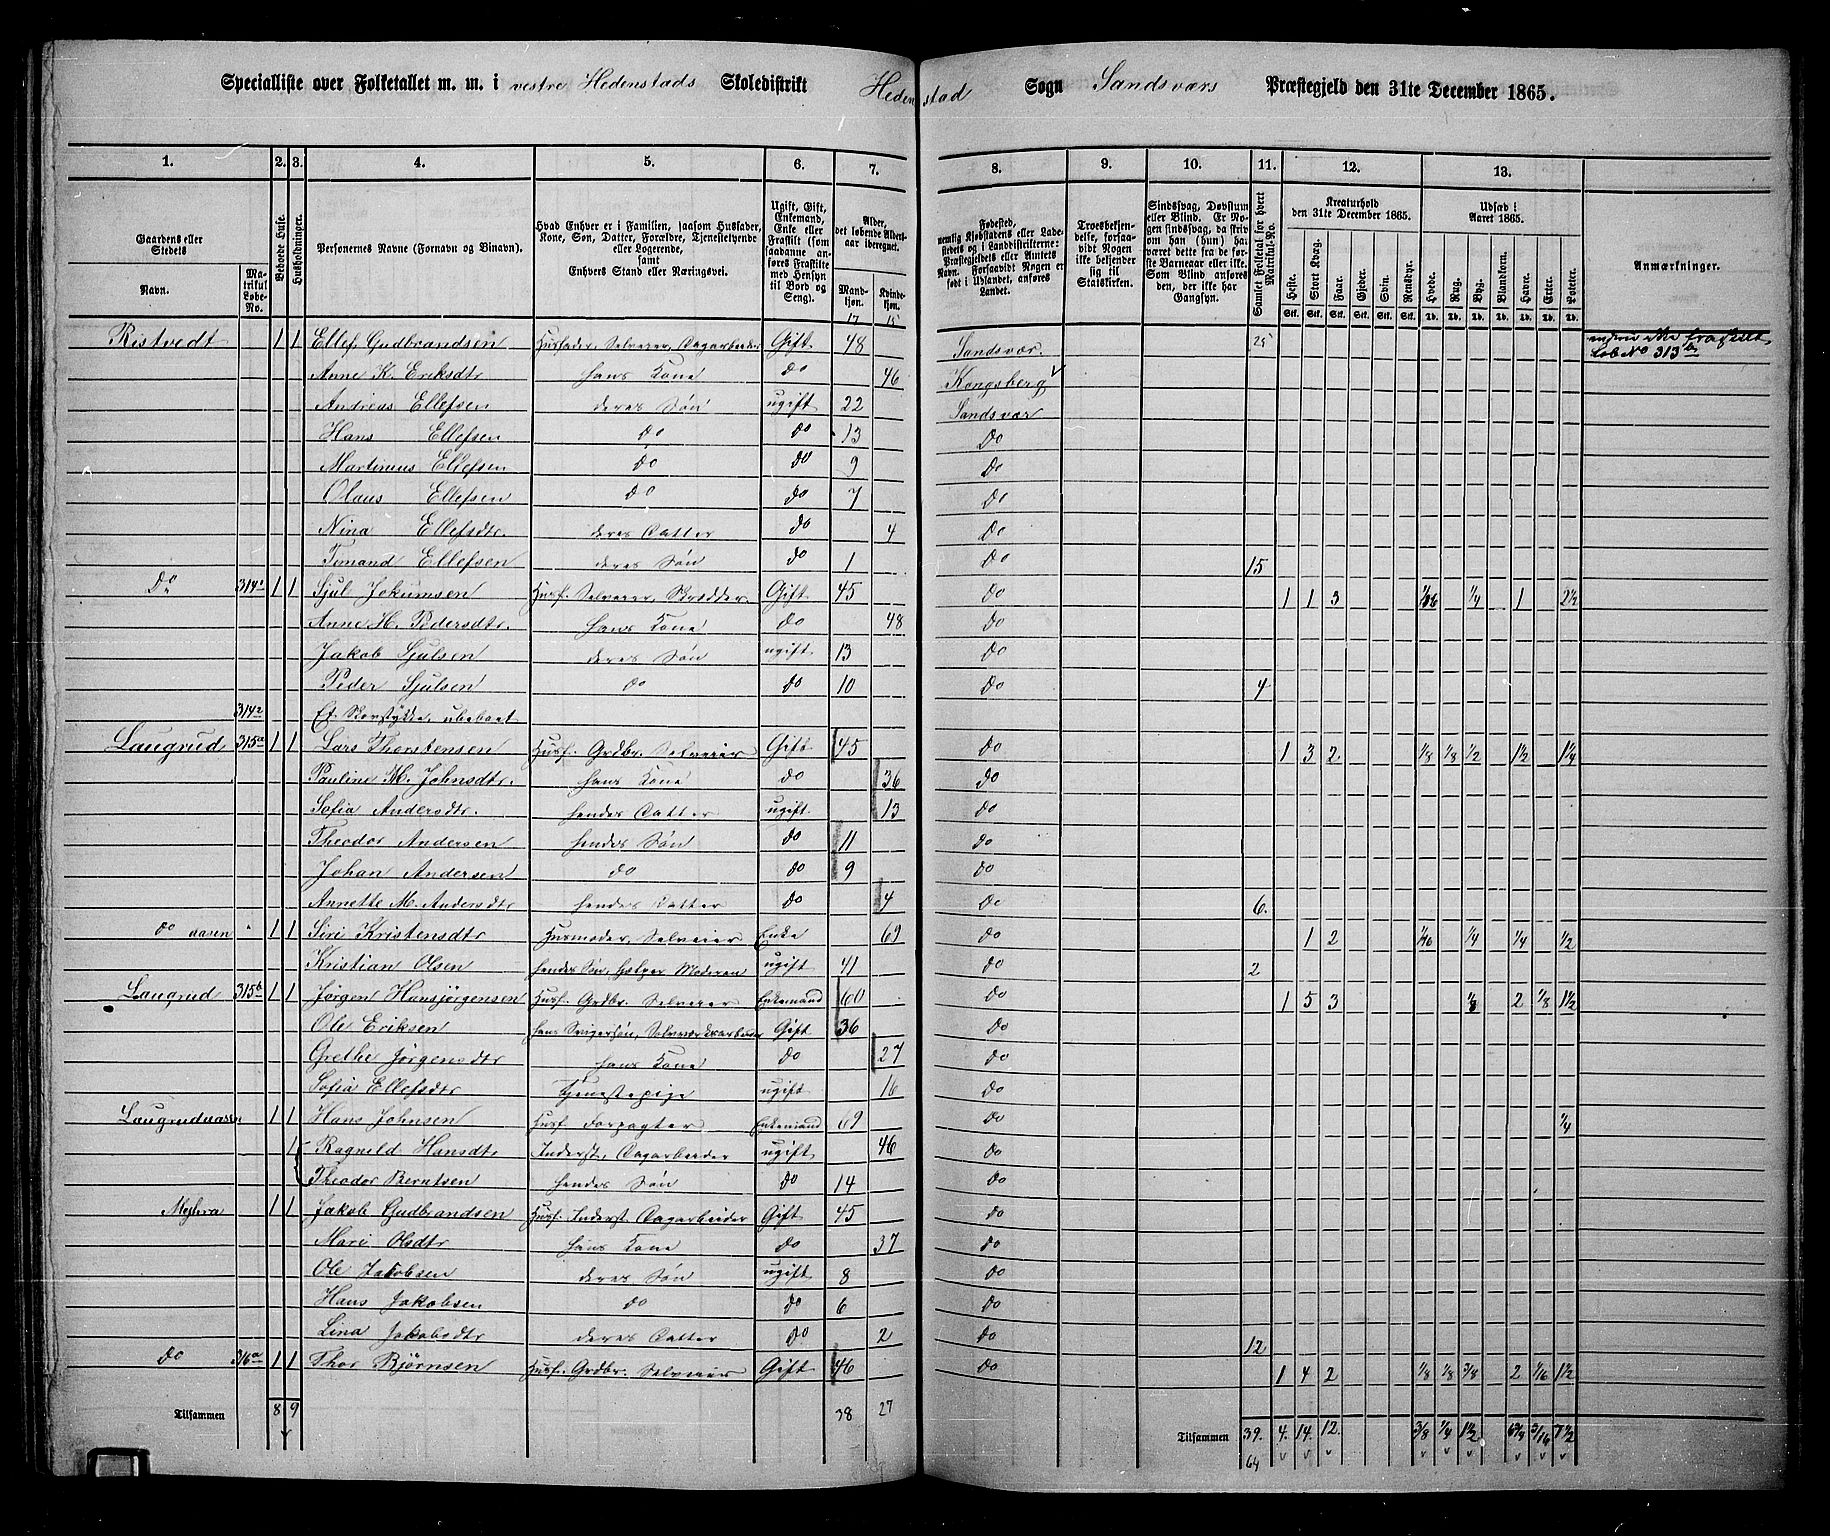 Specialliste over Folketallet m. m. i vestre Hedenstads Skoledistrikt Hedenstad Sogn Sandsværs Præstegjeld den 31te December 1865.
1. 2. 3. 4. 5. 6. 7. 8. 9. 10. 11. 12. 13.
Gaardens eller Stedets Navn. Matrikul Løbe-No. Beboede Huse. Husholdninger. Personernes Navne (Fornavn og Binavn).
Hvad Enhver er i Familien, saasom Husfader, Kone, Søn, Datter, Forældre, Tjenestetyende eller Logerende, samt Enhvers Stand eller Næringsvei.
Ugift, Gift, Enkemand, Enke eller Fraskilt (som saadanne anføres Fraskilte med Hensyn til Bord og Seng).
Alder, det løbende Alders-aar iberegnet. Mandkjøn. Kvindekjøn.
Fødested, nemlig Kjøbstadens eller Ladestedets og i Landdistrikterne: Præstegjeldets eller Amtets Navn. Forsaavidt Nogen er født i Udlandet, anføres Landet.
Troesbekjendelse, forsaavidt Nogen ikke bekjender sig til Statskirken.
Sindssvag, Døvstum eller Blind. Er Nogen sindssvag, da skriv om han (hun) har været dette fra de første Barneaar eller ikke. Som Blind anføres den, der ikke har Gangsyn.
Samlet Folketal for hvert Matrikul-No.
Kreaturhold den 31te December 1865. Heste. Stort Kvæg. Faar. Gjeder. Svin. Rensdyr.
Udsæd i Aaret 1865. Hvede. Rug. Byg. Blandkorn. Havre. Erter. Poteter.
Anmærkninger.
Stk. Stk. Stk. Stk. Stk. Stk. Td. Td. Td. Td. Td. Td. Td.
17 15
Ristvedt 1 1 Ellef Gudbrandsen Husfader, Selveier, Dagarbeider Gift 48 Sandsvær. 25 Løb No 313
Anne K. Eriksdtr hans Kone do 46 Kongsberg
Andreas Ellefsen deres Søn ugift 22 Sandsvær
Hans Ellefsen do do 13 Do
Martinus Ellefsen do do 9 Do
Olaus Ellefsen do do 7 Do
Nina Ellefsdtr. deres Datter do 4 Do
Timand Ellefsen deres Søn do 1 Do 15
Do 314 1 1 Sjul Jokumsen Husf. Selveier, Skrædder. Gift 45 Do 1 1 3 1/16 1/4 1 2 1/2
Anne H. Pedersdtr. hans Kone do 48 Do
Jakob Sjulsen deres Søn ugift 13 Do
Peder Sjulsen do do 10 Do 4
314 2 Et Skovstykke, ubeboet
Laugrud 315a 1 1 Lars Thorstensen Husf. Grdbr. Selveier Gift 45 Do 1 3 2 1/8 1/8 1/2 1 1/2 1 1/4
Pauline M. Johnsdtr. hans Kone do 36 Do
Sofia Andersdtr. hendes Datter ugift 13 Do
Theodor Andersen hendes Søn do 11 Do
Johan Andersen do do 9 Do
Annette M. Andersdtr hendes Datter do 4 Do 6.
do aasen " 1 1 Siri Kristensdtr Husmoder, Selveier Enke 69 Do 1 2 1/16 1/4 1/4 1/2
Kristian Olsen hendes Søn, hjelper Moderen ugift 41 Do 2
Laugrud 315b 1 1 Jørgen Hansjørgensen Husf. Grdbr. Selveier Enkemand 60 Do 1 5 3 1/8 2 1/8 1 1/2
Ole Eriksen hans Svigersøn, Sølvværksarbeider Gift 36 Do
Grethe Jørgensdtr hans Kone do 27 Do
Sofia Ellefsdtr Tjenestepige ugift 16 Do
Laugrudaasen 1 1 Hans Johnsen Husf Forpagter Enkemand 69 Do 1/4
1 Ragnild Hansdtr Inderst, Dagarbeider ugift 46 Do
Theodor Berntsen hendes Søn do 14 Do
Myhra 1 1 Jakob Gudbrandsen Husf. Inderst, Dagarbeider Gift 45 Do
Mari Olsdtr hans Kone do 37 Do
Ole Jakobsen deres Søn ugift 8 Do
Hans Jakobsen do do 6 Do
Lina Jakobsdtr deres Datter do 2 Do 12
Do 316a 1 1 Thor Bjørnsen Husf. Grdbr. Selveier Gift 46 Do 1 4 2 1/8 1/8 3/8 2 1/16 1 1/2
Tilsammen 8 9 38 27 Tilsammen 39. 4. 14. 12. 3/8 1/4 1 1/2 6 3/4 3/16 7 1/2
64